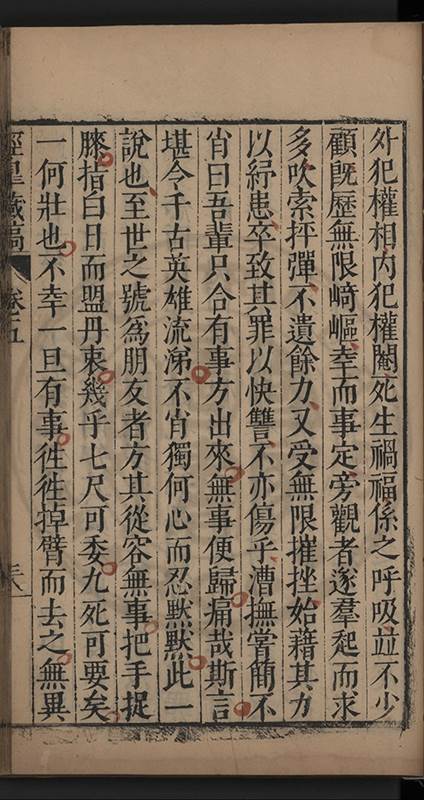 外犯權相內犯權閹死生禍福係之呼吸並不少
顧既歷無限崎嶇幸而事定旁觀者遂羣起而求
多吹索抨彈不遺餘力又受無限摧挫始藉其力
以紓患卒致其罪以快讐不亦傷乎漕撫嘗簡不
肖曰吾輩只合有事方出來無事便歸痛哉斯言
堪令千古英雄流涕不肖獨何心而忍默默此一
說也至世之號為朋友者方其從容無事把手捉
膝指白日而盟丹衷幾乎七尺可委九死可要矣
一何壯也不幸一旦有事徃徃掉臂而去之無異
涇臯藏稿 卷之五